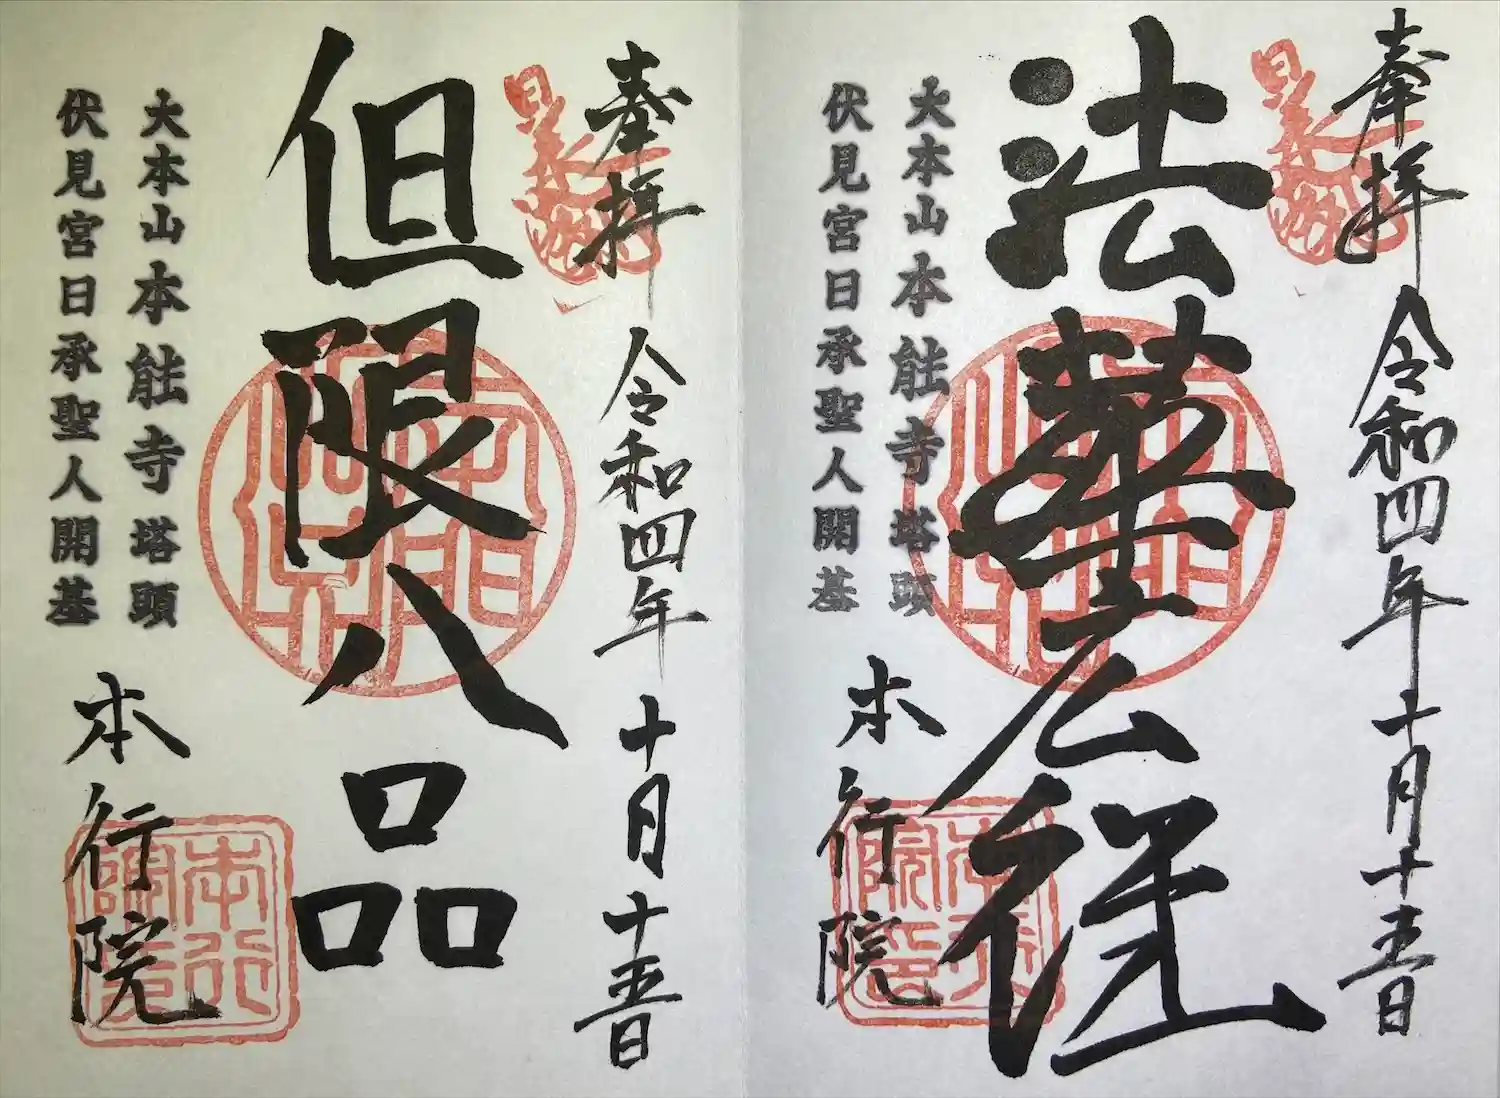 奉拝 令和四年十月十五日
法華経
大本山本能寺塔頭
伏見宮日承聖人開基
本行院
本行院印
奉拝 令和四年十月十五日
但限八品
大本山本能寺塔頭
伏見宮日承聖人開基
本行院
本行院印